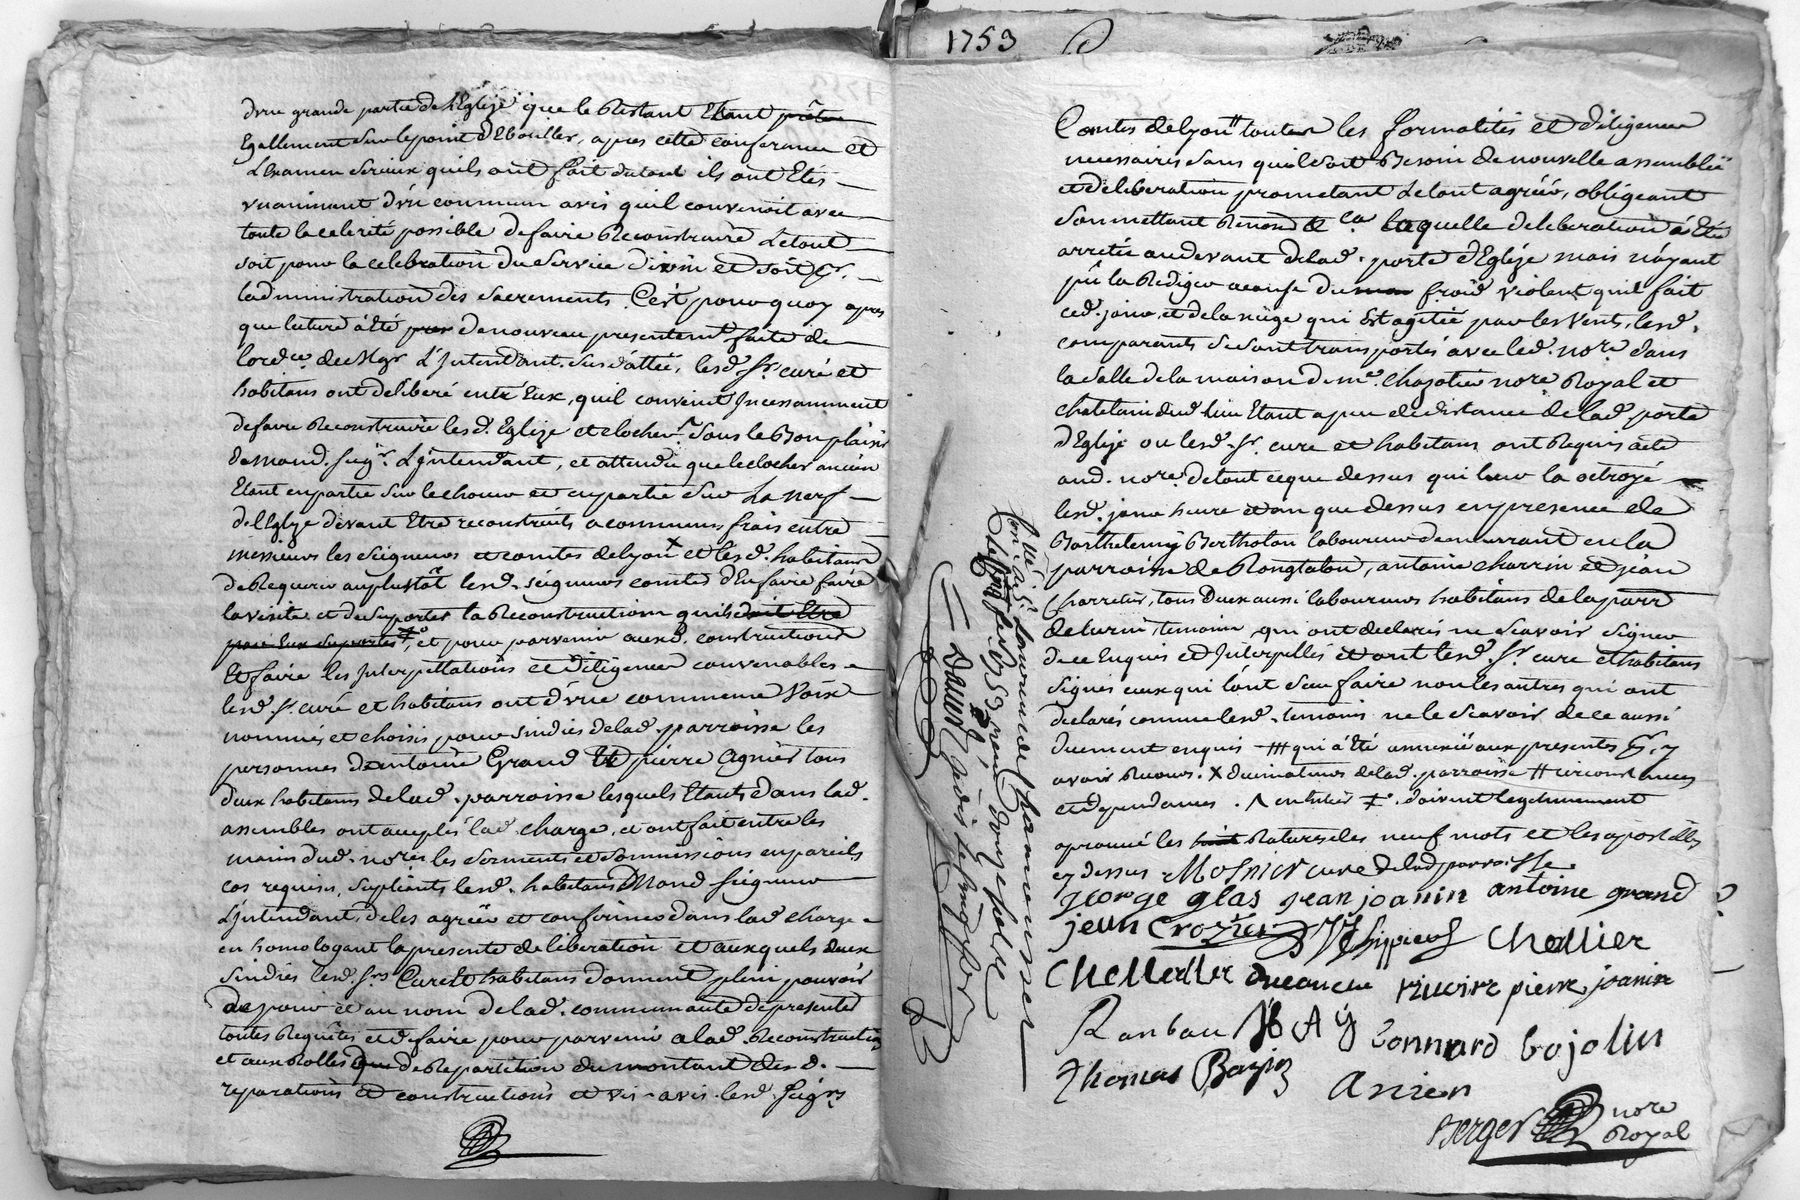 d'vne grande partie de l'Eglize que le Restant Etant
Egallement sur le point d'Ebouller, apres cette conferance et
L'Examen serieux quils ont fait dutout ils ont Etés
vnaniment d'vn commun avis quil convenoit avec
toute la celerité possible de faire Reconstruire Letout
soit pour la celebration du service divin et soit pr.
ladministration des sacrements. C'est pourquoy apres
que lecture à été de nouveau presentement faite de
lord.ce de Mgr L'Intendant. sus d'attée, lesd. sr. curé et
habitans ont deliberé entre Eux, quil convient Incessamment
defaire Reconstruire lesd. Eglize et clocher. sous le Bon plaisir
de mond. seigr. L'Intendant, et attendu que leclocher ancien
Etant enpartie sur lechoeur et enpartie sur La nerf
del'Eglize devant Etre reconstruits a communs frais entre
messieurs les seigneurs et comtes delyon x et lesd. habitans
de Requerir auplustôt lesd. seigneurs comtes d'En faire faire
la visite et de suporter la Reconstruction quils doit Etre
par Eux suportés, et pour parvenir auxd. constructions
Et faire les Interpellations et diligences convenables
lesd. sr. curé et habitans ont d'vne commune voix
nommés et choisis pour sindics delad. parroisse les
personnes d'antoine Grand et pierre Agnier tous
deux habitans delad. parroisse lesquels Etants dans lad.
assemblés ont acceptés lad. charge, et ont fait entre les
mains dud. nore. les serments et sommissions enpareils
cas requises, supliants lesd. habitans Mond seigneur
L'Intendant, deles agréer et confirmer dans lad charge
en homologant la presente deliberation et auxquels deux
sindics lesd. srs Curé et habitans donnent plein pouvoir
de pour et au nom delad. communauté depresenter
toutes Requêtes et defaire pour parvenir alad. Reconstruction
et aux Rolles de Repartition du montant desd.
reparations et constructions et vis-avis lesd. seigrs
1753
Comtes delyon toutes les formalités et diligences
necessaires sans quil soit Besoin de nouvelle assemblée
et deliberation prometant letout agréer, obligeant
sommettant Renonct. &ca. laquelle deliberation à Eté
arretée audevant delad. porte d'Eglize mais n'ayant
pû la Rediger acause du froid violent quil fait
ced. jour, et de la neige qui Est agitée par les vents, lesd.
comparants se sont transportés avec led. nore. dans
la salle de la maison de me. chazotier nore Royal et
chatelain dud lieu Etant apeu dedistance delad porte
d'Eglize ou lesd. sr. curé et habitans ont Requis acte
aud. nore. detout ceque dessus qui leur la octroyé
lesd. jour heure et an que dessus enpresence de
Barthelemy Bertholon laboureur demeurant en la
parroisse de Rongtalon, antoine charrin et jean
Charretier, tous deux aussi laboureurs habitans delaparr
de temoins qui ont declarés ne sçavoir signer
de ce Enquis et Interpellés et ont lesd. sr. curé et habitans
signés ceux qui l'ont sceu faire non les autres qui ont
declarés comme lesd. temoins ne le sçavoir de ce aussi
duement enquis qui à été annexée aux presentes pr. y
avoir Recours. x decimateurs delad. parroisse # circonstances
et dependances. doivent legitimement
aprouvé les Ratures des neuf mots et les apostilles
cy dessus Mosnier curé delad parroisse
george glas jean joanin antoine grand
jean Crozier Chollier
ducanche riuoire pierre joanin
Ranbau bonnard bojolin
Thomas Bazin
Anien
Berger nore
Royal